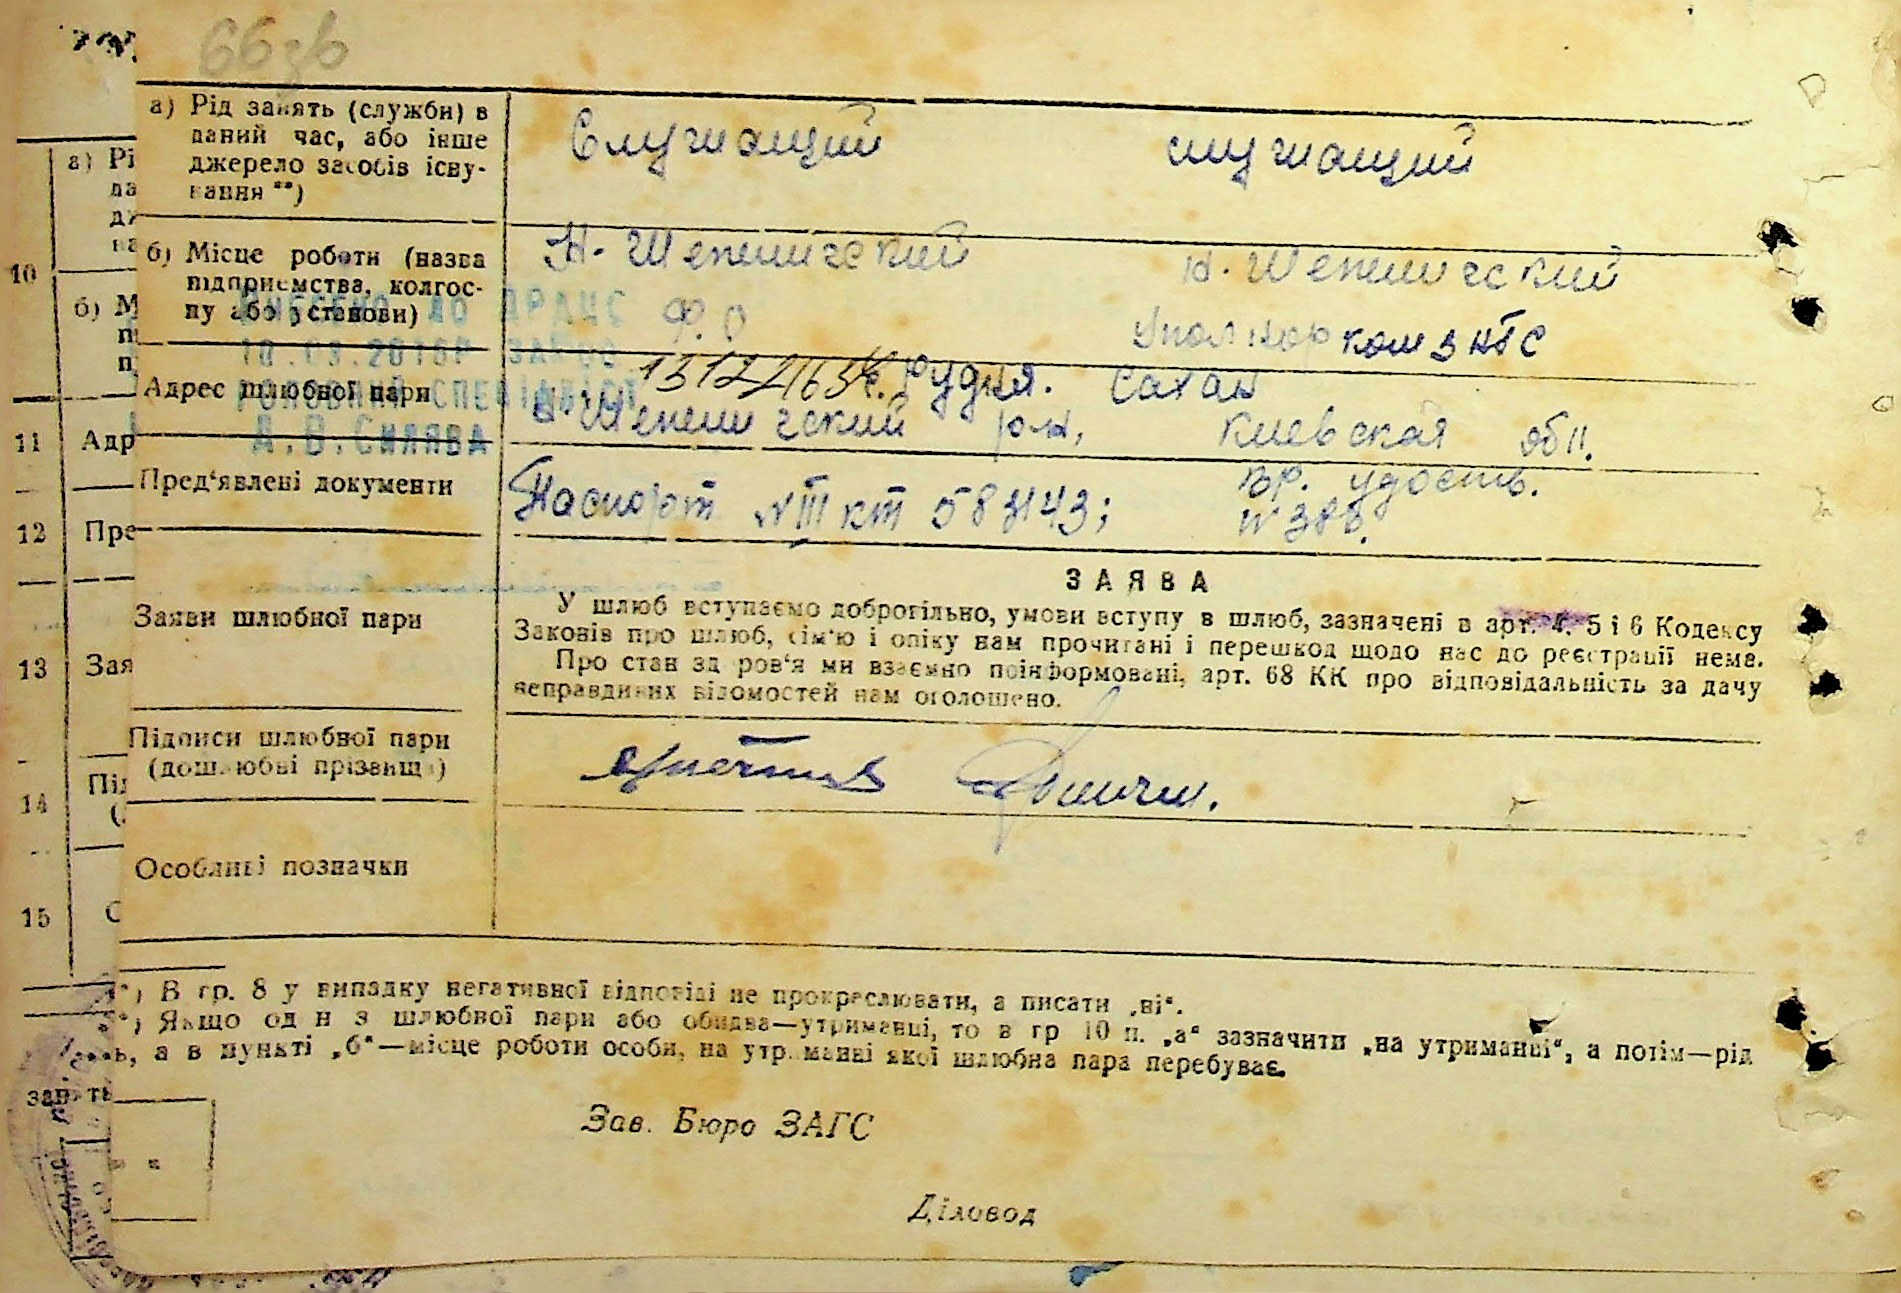 66зв
а) Рід занять (служби) в
даний час, або інше
джерело засобів існу-
вання **)
Служащий служащий
б) Місце роботи (назва
підприємства, колгос-
пу або установи)
Н. Шепеличский Н. Шепеличский
Ф. О Упол нар ком знтс
ВНЕСЕНО ДО ДРАЦС
ГОЛОВНИЙ СПЕЦІАЛІСТ
Адрес шлюбної пари
Рудня. Сахан
Н. Шепеличский р-н, Киевская обл.
Пред'явлені документи
Паспорт № III кт вр. удость.
Заяви шлюбної пари
ЗАЯВА
У шлюб вступаємо добровільно, умови вступу в шлюб, зазначені в арт. 4, 5 і 6 Кодексу
Законів про шлюб, сім'ю і опіку нам прочитані і перешкод щодо нас до реєстрації нема.
Про стан здоров'я ми взаємно поінформовані, арт. 68 КК про відповідальність за дачу
неправдивих відомостей нам оголошено.
Підписи шлюбної пари
(дошлюбні прізвища)
Особливі позначки
10
11 Адр
12 Пре
13 Зая
14 Під
15
*) В гр. 8 у випадку негативної відповіді не прокреслювати, а писати „ні“.
**) Якщо один з шлюбної пари або обидва—утриманці, то в гр 10 п. „а“ зазначити „на утриманні“, а потім—рід
занять, а в пункті „б“—місце роботи особи, на утриманні якої шлюбна пара перебуває.
Зав. Бюро ЗАГС
Діловод